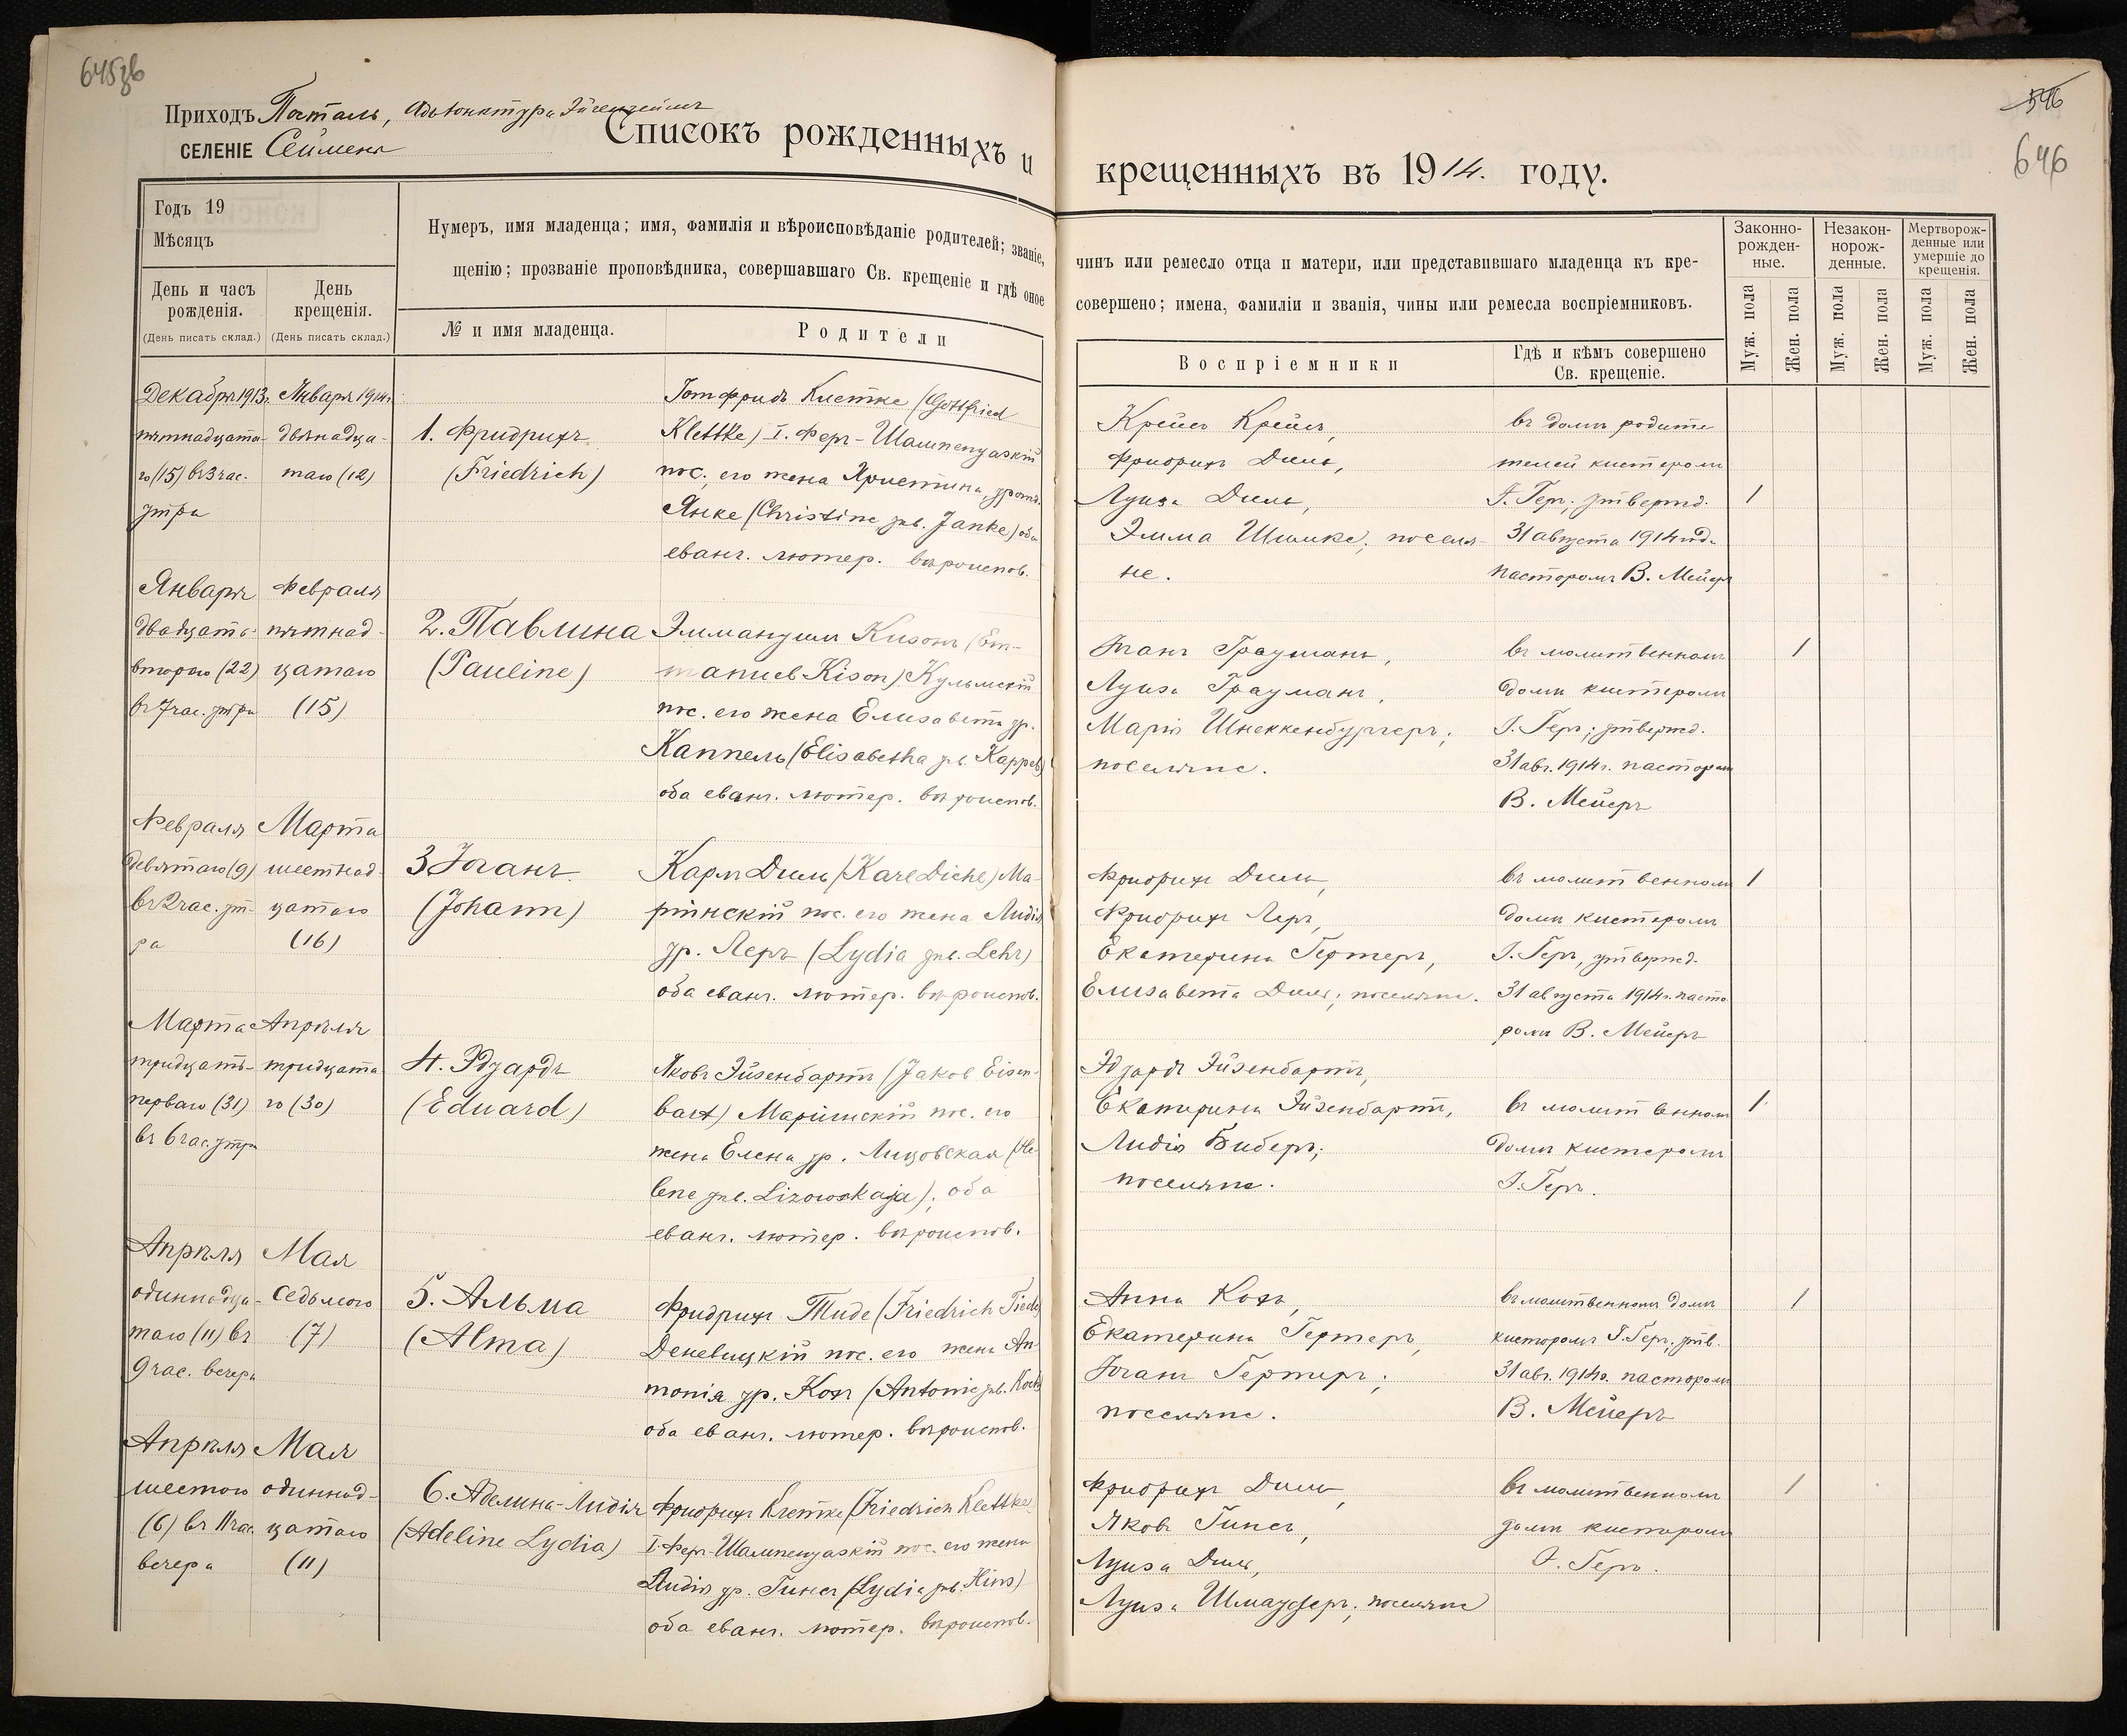 645зв
Приходъ Посталь, Адъюнктура Эйгенгеймъ
СЕЛЕНІЕ Сеймены
Списокъ рожденныхъ и
Годъ 19
Мѣсяцъ
День и часъ рожденія.
(День писать склад.)
День крещенія.
(День писать склад.)
Нумеръ, имя младенца; имя, фамилія и вѣроисповѣданіе родителей; званіе,
щенію; прозваніе проповѣдника, совершавшаго Св. крещеніе и гдѣ оное
№ и имя младенца.
Родители
Декабря 1913г. Января 1914г.
пятнадцата- двѣнадца-
го (15) въ 3 час. таго (12)
утра
1. Фридрихъ
(Friedrich)
Готфридъ Клетке (Gottfried
Klettke) I. Фер-Шампенуазскій
пос., его жена Христина, урожд.
Янке (Christine geb. Janke) оба
еванг. лютер. вѣроиспов.
Января Февраля
двадцать- пятнад-
второго (22) цатаго
въ 7 час. утра (15)
2. Павлина
(Pauline)
Эммануилъ Кизонъ (Em-
manuel Kison) Кульмскій
пос. его жена Елизавета ур.
Каппель (Elisabetha geb. Kappel)
оба еванг. лютер. вѣроиспов.
Февраля Марта
девятаго (9) шестнад-
въ 2 час. ут- цатаго
ра (16)
3 Іоганъ
(Johann)
Карлъ Диль (Karl Diehl) Ма-
ріинскій пос. его жена Лидія
ур. Леръ (Lydia geb. Lehr)
оба еванг. лютер. вѣроиспов.
Марта Апрѣля
тридцать- тридцата
перваго (31) го (30)
въ 6 час. утра
4. Эдуардъ
(Eduard)
Яковъ Эйзенбартъ (Jakob Eisen-
bart) Маріинскій пос. его
жена Елена ур. Лизовская (He-
lene geb. Lizowskaja); оба
еванг. лютер. вѣроиспов.
Апрѣля Мая
одиннадца- седьмого
таго (11) въ (7)
9 час. вечера
5. Альма
(Alma)
Фридрихъ Тиде (Friedrich Tiede)
Деневицкій пос. его жена Ан-
тонія ур. Кохъ (Antonie geb. Koch)
оба еванг. лютер. вѣроиспов.
Апрѣля Мая
шестого одиннад-
(6) въ 11 час. цатаго
вечера (11)
6. Аделина-Лидія
(Adeline Lydia)
Фридрихъ Клетке (Friedrich Klettke)
I. Фер-Шампенуазскій пос. его жена
Лидія ур. Гинсъ (Lydia geb. Hins)
оба еванг. лютер. вѣроиспов.
546
646
крещенныхъ въ 1914. году.
чинъ или ремесло отца и матери, или представившаго младенца къ кре-
совершено; имена, фамиліи и званія, чины или ремесла воспріемниковъ.
Воспріемники
Гдѣ и кѣмъ совершено
Св. крещеніе.
Законно-
рожден-
ные.
Незакон-
норож-
денные.
Мертворож-
денные или
умершіе до
крещенія.
Муж. пола
Жен. пола
Муж. пола
Жен. пола
Муж. пола
Жен. пола
Крейсъ Крейсъ,
Фридрихъ Диль,
Луиза Диль,
Эмма Шимке; поселя-
не.
въ домѣ родите
телей кистеромъ
І. Геръ; утвержд.
31 августа 1914 года
пасторомъ В. Мейеръ
1
Іоганъ Грауманъ,
Луиза Грауманъ,
Марія Шнеккенбургеръ;
поселяне.
въ молитвенномъ
домѣ кистеромъ
І. Геръ; утвержд.
31 авг. 1914г. пасторомъ
В. Мейеръ
1
Фридрихъ Диль,
Фридрихъ Леръ,
Екатерина Гертеръ,
Елизавета Диль; поселяне.
въ молитвенномъ
домѣ кистеромъ
І. Геръ, утвержд.
31 августа 1914г. пасто
ромъ В. Мейеръ
1
Эдуардъ Эйзенбартъ,
Екатерина Эйзенбартъ,
Лидія Биберъ;
поселяне.
въ молитвенномъ
домѣ кистеромъ
І. Геръ.
1
Анна Кохъ,
Екатерина Гертеръ,
Іоганъ Гертеръ;
поселяне.
въ молитвенномъ домѣ
кистеромъ І. Геръ; утв.
31 авг. 1914г. пасторомъ
В. Мейеръ
1
Фридрихъ Диль,
Яковъ Гинсъ,
Луиза Диль,
Луиза Шмаудеръ; поселяне
въ молитвенномъ
домѣ кистеромъ
І. Геръ.
1